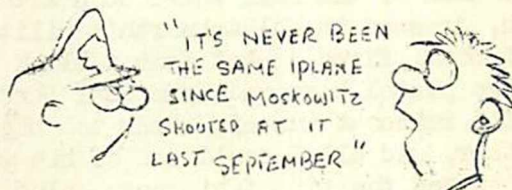 "IT'S NEVER BEEN
THE SAME IPLANE
SINCE MOSKOWITZ
SHOUTED AT IT
LAST SEPTEMBER"